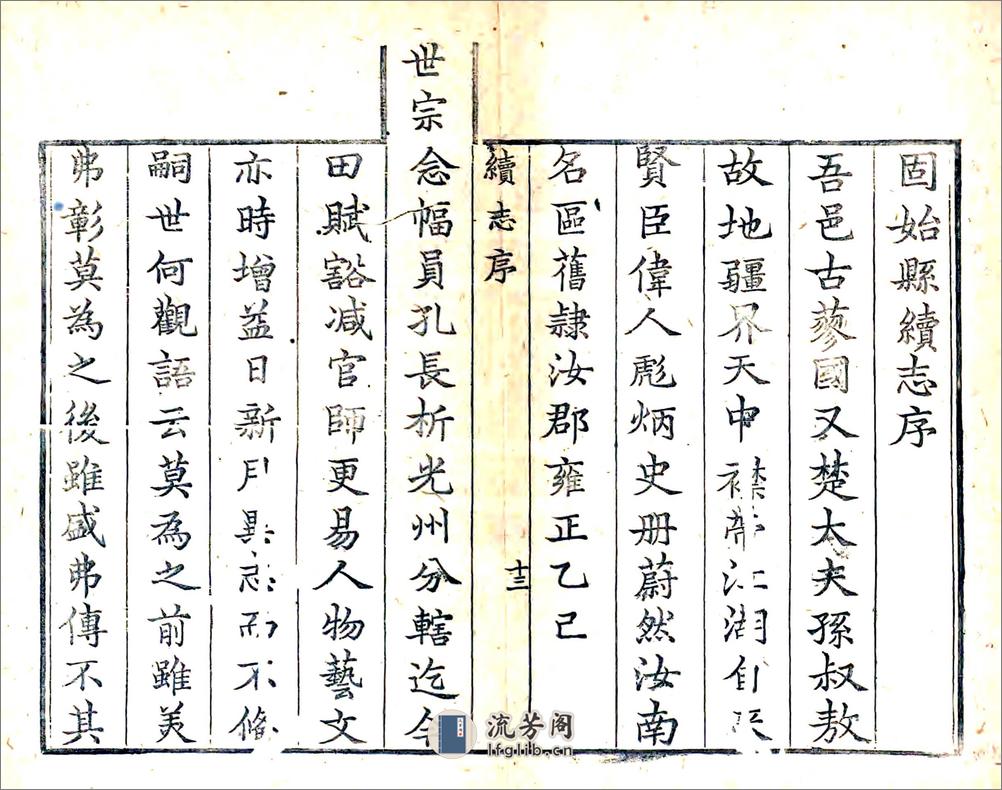 固始縣續志序
吾邑古蓼國又楚大夫孫叔敖
故地疆界天中襟帶江湖自
賢臣偉人彪炳史册蔚然汝南
名區舊隷汝郡雍正乙巳
續志序 十三
世宗念幅員孔長析光州分轄迄今
田賦豁减官師更易人物藝文
亦時增益日新月異志而不脩
嗣世何觀語云莫為之前雖美
弗彰莫為之後雖盛弗傳不其
流芳阁
lfglib.cn